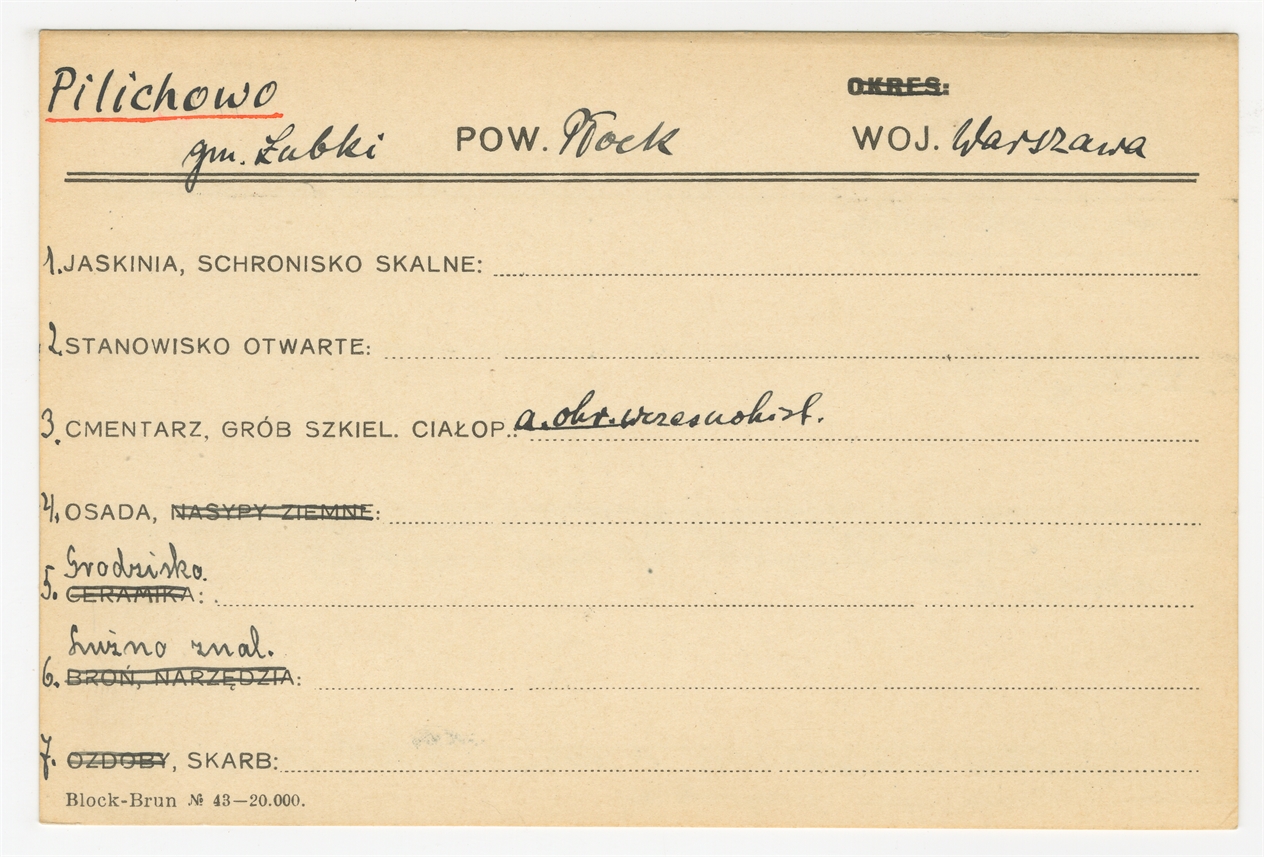 Pilichowo
OKRES:
gm. Łubki POW. Płock WOJ. Warszawa
1. JASKINIA, SCHRONISKO SKALNE:
2. STANOWISKO OTWARTE:
3. CMENTARZ, GRÓB SZKIEL. CIAŁOP.: a. okr. wczesnohist.
4. OSADA, NASYPY ZIEMNE:
Grodzisko.
5. CERAMIKA:
Luźno znal.
6. BROŃ, NARZĘDZIA:
7. OZDOBY, SKARB:
Block-Brun № 43—20.000.